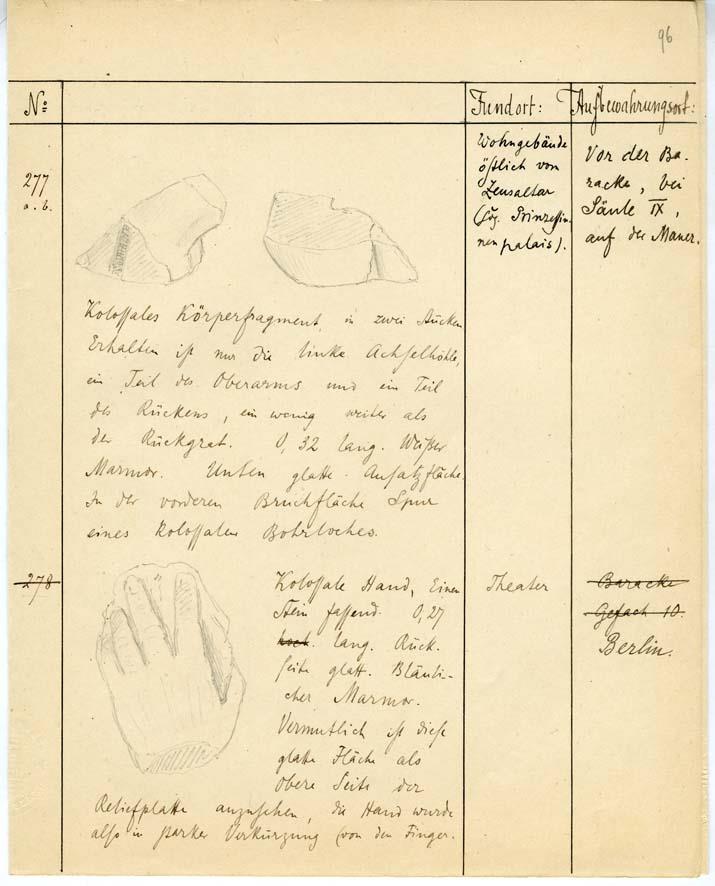 96
No: Fundort: Aufbewahrungsort:
277
a. b.
Wohngebäude
östlich von
Zeusaltar
(sog. Prinzessin-
nenpalais).
Vor der Ba-
racke, bei
Säule IX,
auf der Mauer.
Kolossales Körperfragment, in zwei Stücken
Erhalten ist nur die linke Achselhöhle,
ein Teil des Oberarms und ein Teil
des Rückens, ein wenig weiter als
der Rückgrat. 0,32 lang. Weißer
Marmor. Unten glatte Ansatzfläche.
In der vorderen Bruchfläche Spur
eines kolossalen Bohrloches.
278
Kolossale Hand, Einen
Stein fassend. 0,27
hoch. lang. Rück-
seite glatt. Bläuli-
cher Marmor.
Vermutlich ist diese
glatte Fläche als
obere Seite der
Reliefplatte anzusehen, die Hand wurde
also in starker Verkürzung (von den Finger-
Theater
Baracke
Gefach 10.
Berlin.